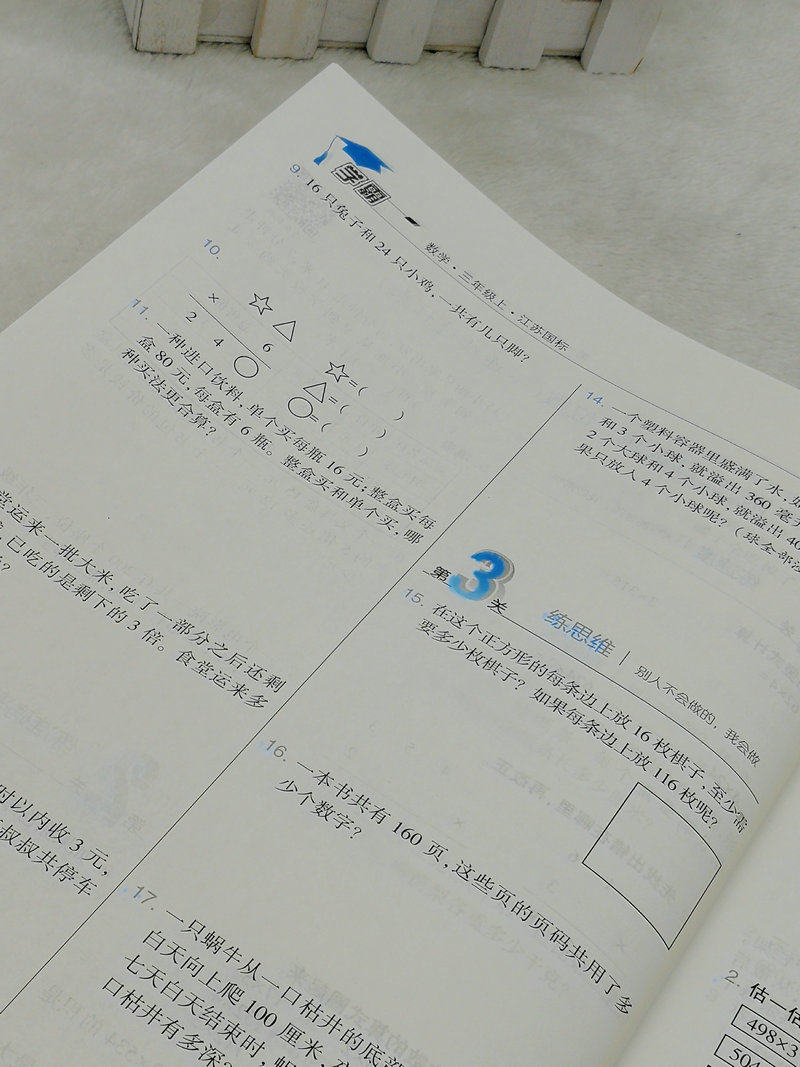 学霸
数学·三年级上·江苏国标
9. 16只兔子和24只小鸡，一共有几只脚？
10.
☆△
× 6
2 4 ○
☆=( )
△=( )
○=( )
11. 一种进口饮料，单个买每瓶16元；整盒买每
盒80元，每盒有6瓶。整盒买和单个买，哪
种买法更合算？
堂运来一批大米，吃了一部分之后还剩
，已吃的是剩下的3倍。食堂运来多
？
时以内收3元，
叔叔共停车
14. 一个塑料容器里盛满了水，
和3个小球，就溢出360毫
2个大球和4个小球，就溢出
果只放入4个小球呢？（球全部
第3关 练思维 | 别人不会做的，我会做
15. 在这个正方形的每条边上放16枚棋子，至少需
要多少枚棋子？如果每条边上放116枚呢？
16. 一本书共有160页，这些页的页码共用了多
少个数字？
17. 一只蜗牛从一口枯井的底部
白天向上爬100厘米，
七天白天结束时，
口枯井有多深？
2. 估一估
498×3
504